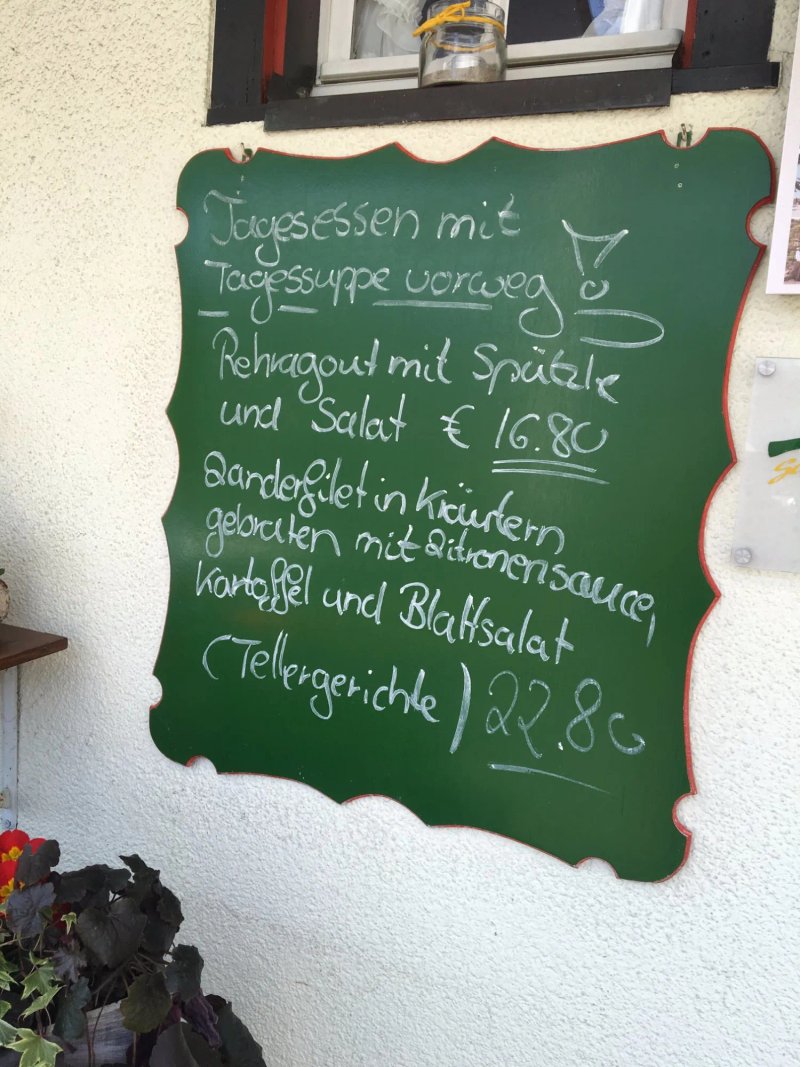 Tagesessen mit
Tagessuppe vorweg !
Rehragout mit Spätzle
und Salat € 16.80
Zanderfilet in Kräutern
gebraten mit Zitronensauce,
Kartoffel und Blattsalat
(Tellergerichte) 22.80